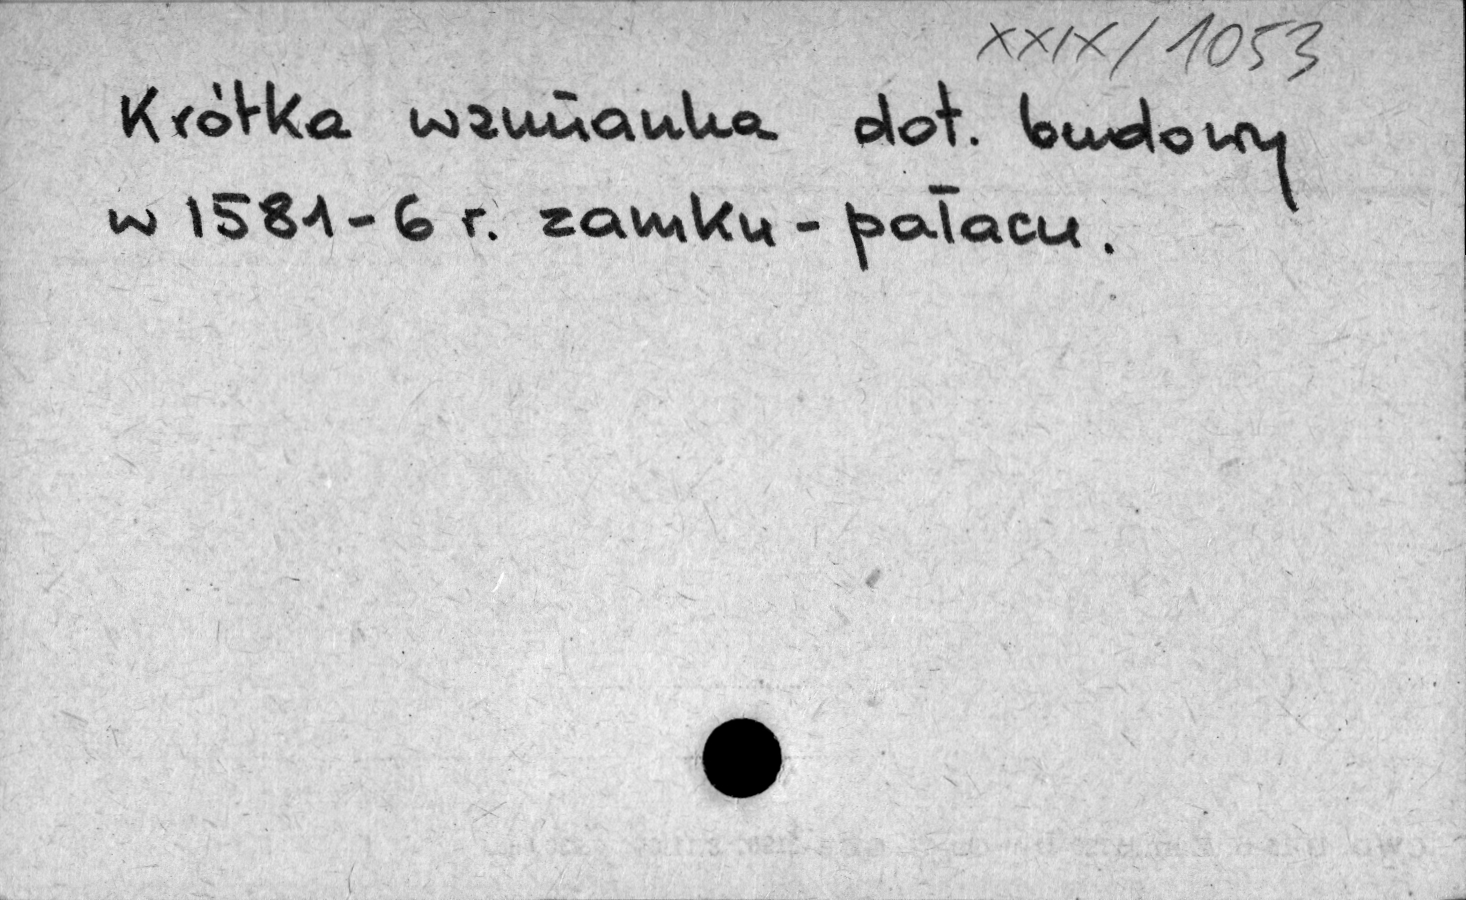 XXIX/1053
Krótka wzmianka dot. budowy
w 1581-6 r. zamku - pałacu.